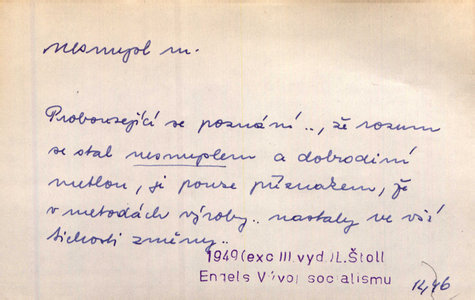 nesmysl m.
Probouzející se poznání.., že rozum
se stal nesmyslem a dobrodiní
metlou, je pouze příznakem, že
v metodách výroby.. nastaly ve vší
tichosti změny..
1949(exc III.vyd.)L.Štoll
Engels Vývoj socialismu
14,46